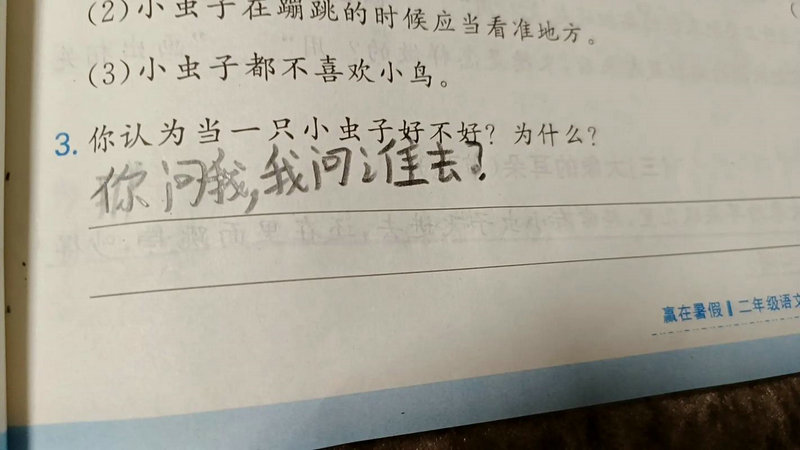 (2)小虫子在蹦跳的时候应当看准地方。
(3)小虫子都不喜欢小鸟。
3. 你认为当一只小虫子好不好？为什么？
你问我,我问谁去?
赢在暑假 二年级语文